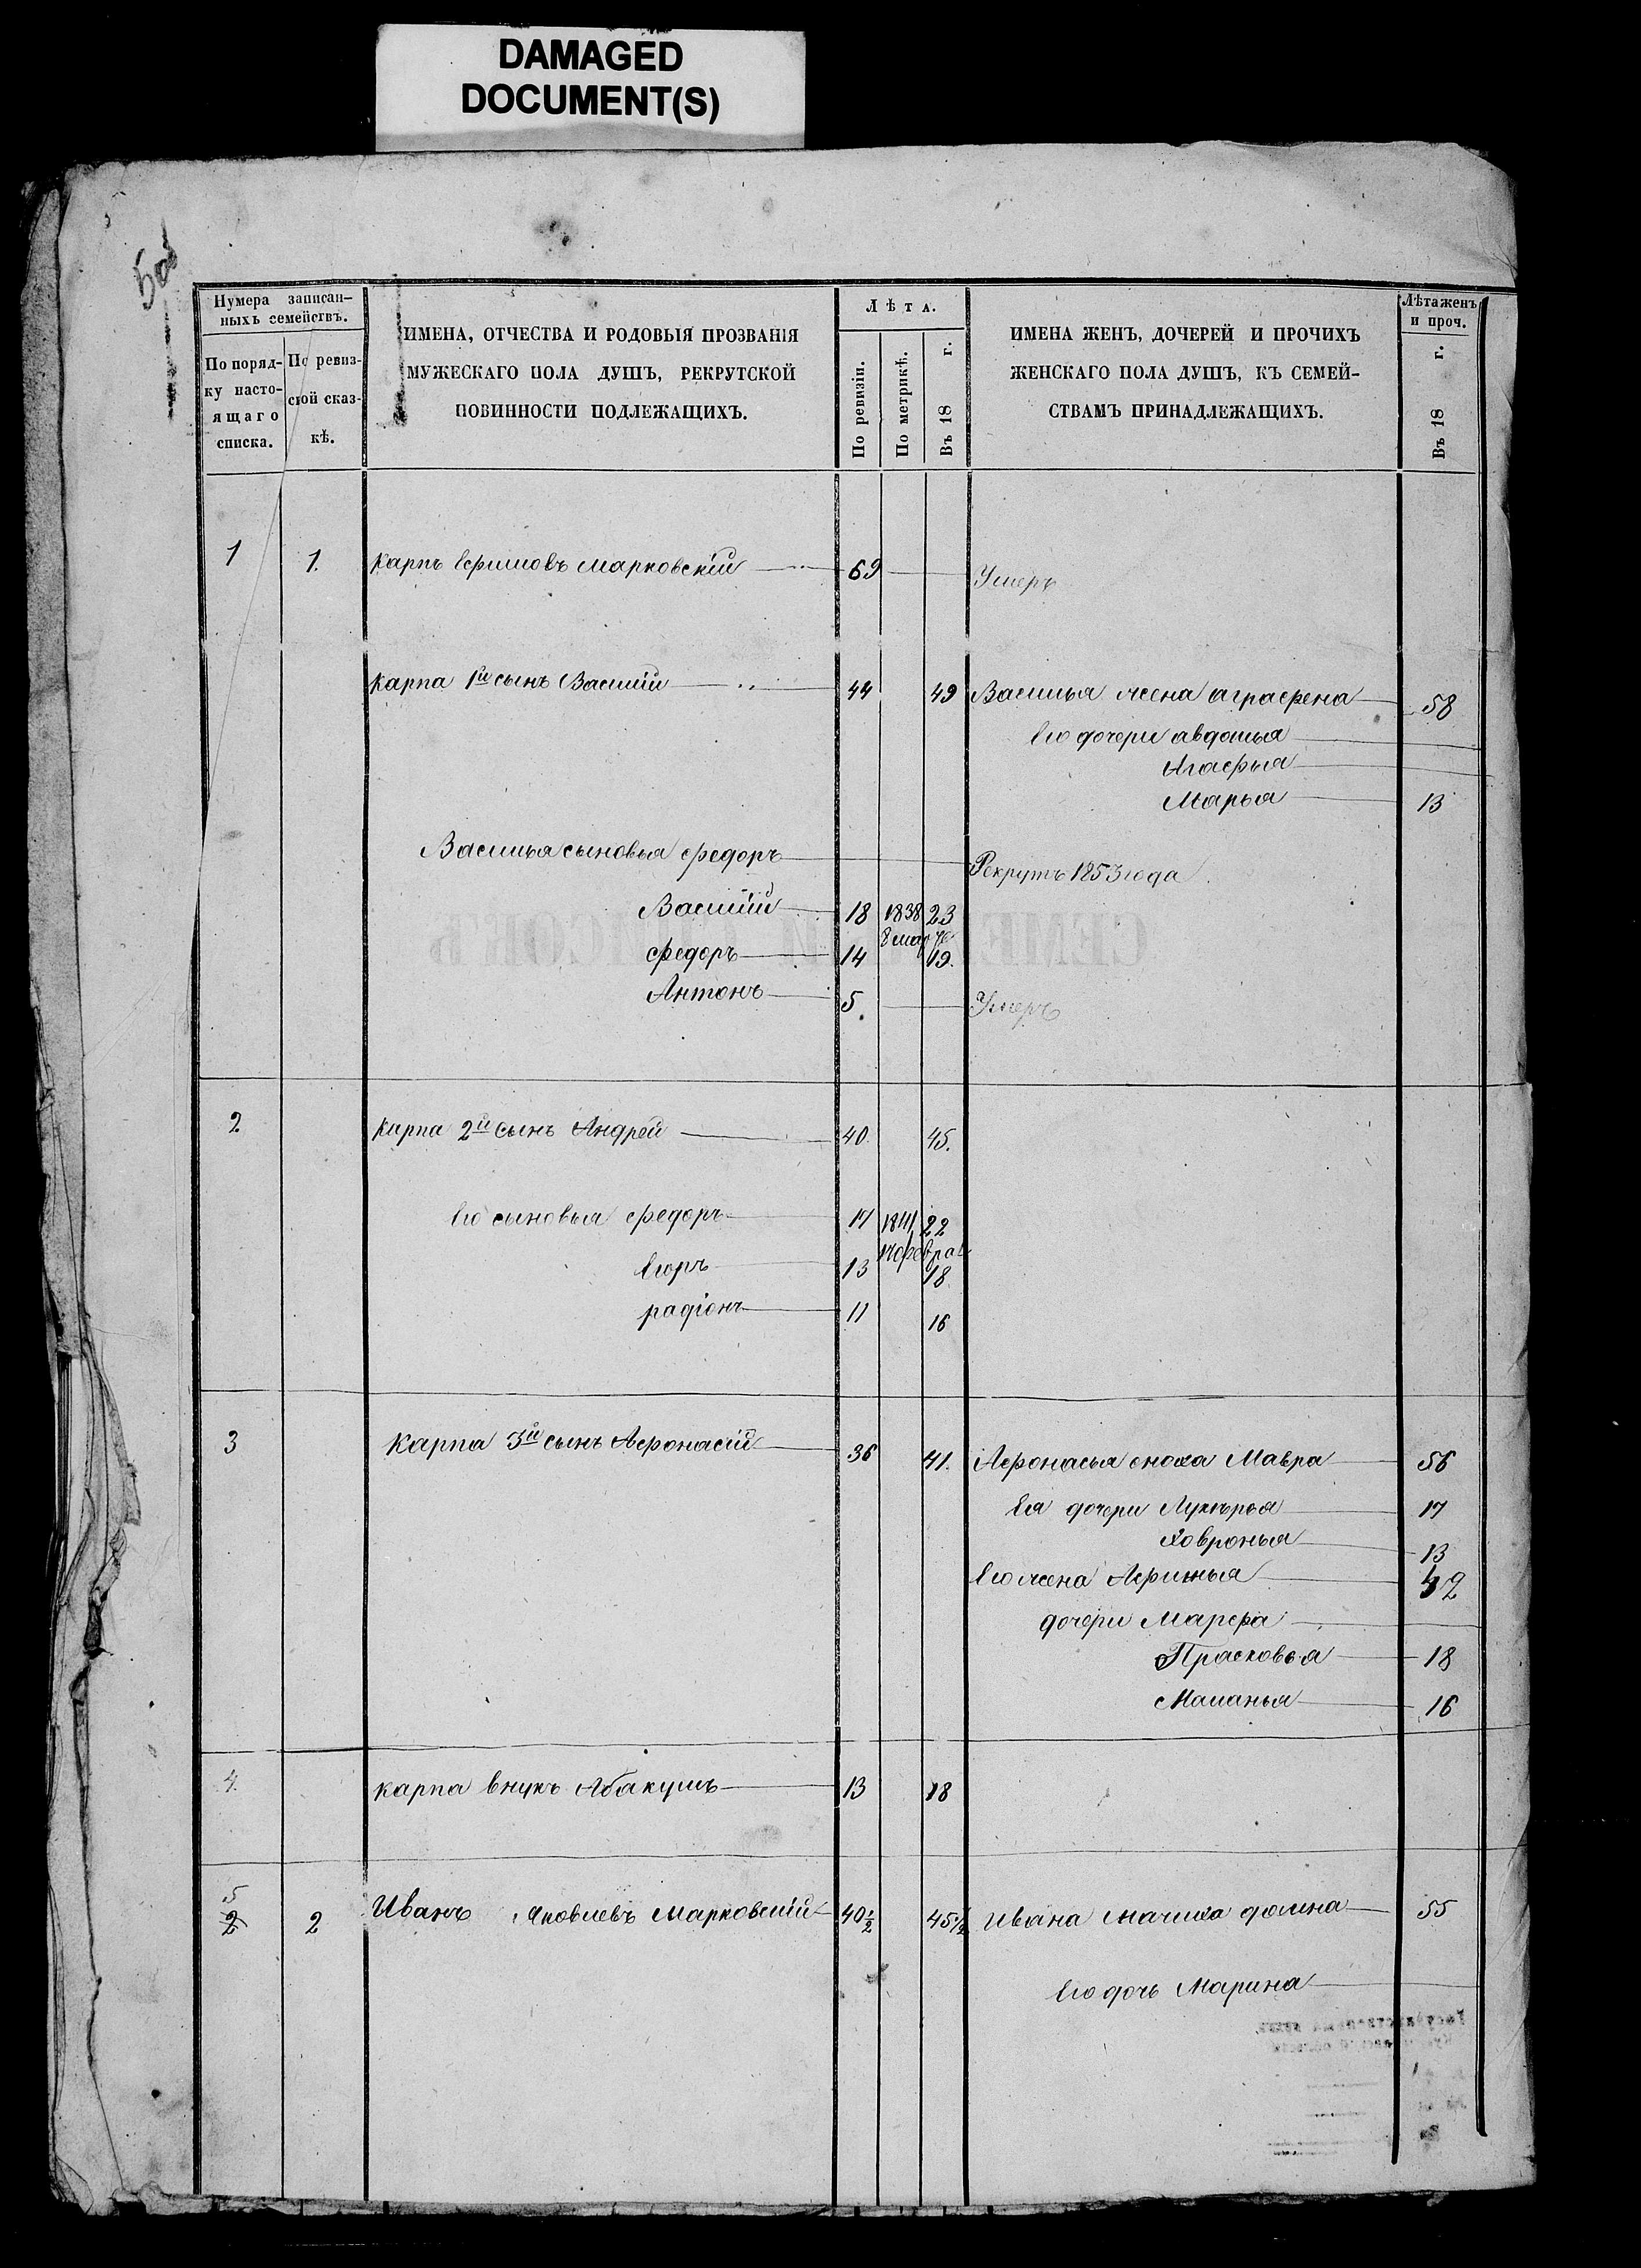 DAMAGED
DOCUMENT(S)
Нумера записан-
ныхъ семействъ.
По поряд-
ку насто-
ящаго
списка.
По ревиз-
ской сказ-
кѣ.
ИМЕНА, ОТЧЕСТВА И РОДОВЫЯ ПРОЗВАНІЯ
МУЖЕСКАГО ПОЛА ДУШЪ, РЕКРУТСКОЙ
ПОВИННОСТИ ПОДЛЕЖАЩИХЪ.
Лѣта.
По ревизіи.
По метрикѣ.
Въ 18 г.
ИМЕНА ЖЕНЪ, ДОЧЕРЕЙ И ПРОЧИХЪ
ЖЕНСКАГО ПОЛА ДУШЪ, КЪ СЕМЕЙ-
СТВАМЪ ПРИНАДЛЕЖАЩИХЪ.
Лѣта женъ
и проч.
Въ 18 г.
1 1. Карпъ Ефимовъ Марковскій 69 Умеръ
Карпа 1й сынъ Василій 44 49 Василья жена Аграфена 58
Его дочери Авдотья
Агафья
Марья 13
Василья сыновья Федоръ Рекрутъ 1853 года
Василій 18 1838 23
8 мар
Федоръ 14 19.
Антонъ 5. Умеръ
2 Карпа 2й сынъ Андрей 40 45.
Его сыновья Федоръ 17 1841 22
феврал
Егоръ 13 18
Радіонъ 11 16
3 Карпа 3й сынъ Афонасій 36 41. Афонасья сноха Мавра 56
Ея дочери Лукерья 17
Ховронья 13
Его жена Афимья 42
дочери Марфа
Прасковья 18
Маланья 16
4. Карпа внукъ Абакумъ 13 18
5
2 2 Иванъ Яковлевъ Марковскій 40½ 45½ Ивана мачиха Домна 55
Его дочь Марина